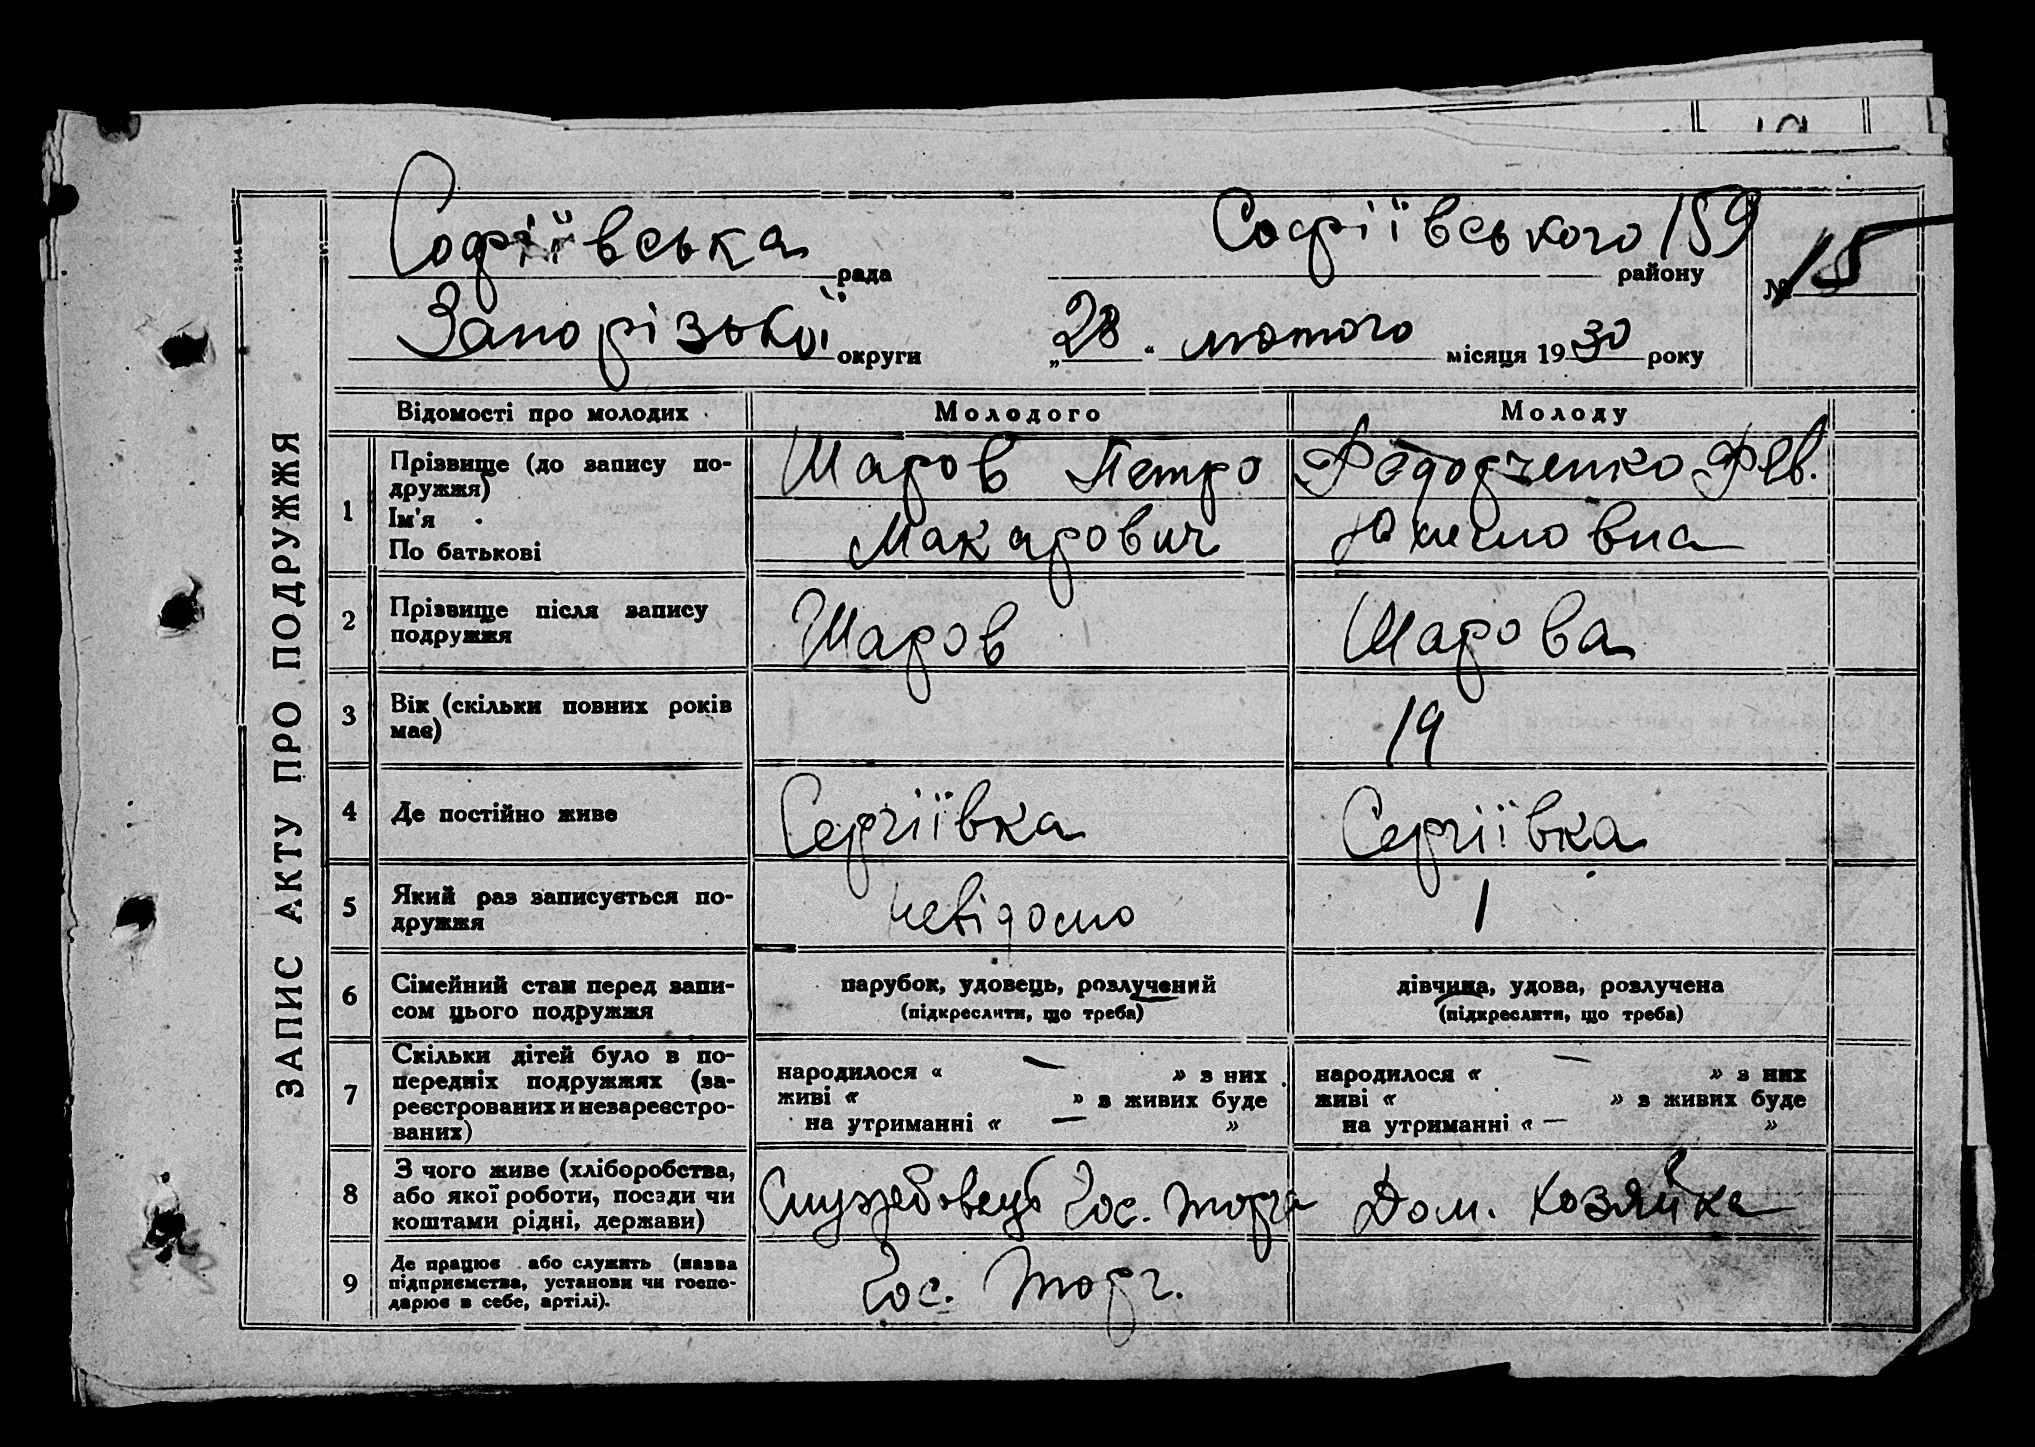 Софіївська рада Софіївського 159 району
№ 15
Запорізької округи „28“ лютого місяця 1930 року
ЗАПИС АКТУ ПРО ПОДРУЖЖЯ
Відомості про молодих Молодого Молоду
1 Прізвище (до запису по-
дружжя)
Ім'я
По батькові
Шаров Петро
Макарович
Фев.
2 Прізвище після запису
подружжя
Шаров Шарова
3 Вік (скільки повних років
має)
19
4 Де постійно живе Сергіївка Сергіївка
5 Який раз записується по-
дружжя
невідомо 1
6 Сімейний стан перед запи-
сом цього подружжя
парубок, удовець, розлучений
(підкреслити, що треба)
дівчина, удова, розлучена
(підкреслити, що треба)
7 Скільки дітей було в по-
передніх подружжях (за-
реєстрованих и незареєстро-
ваних)
народилося « — » з них
живі « » в живих буде
на утриманні « — »
народилося « — » з них
живі « » в живих буде
на утриманні « — »
8 З чого живе (хліборобства,
або якої роботи, посади чи
коштами рідні, держави)
Службовець Гос. торга Дом. хозяйка
9 Де працює або служить (назва
підприємства, установи чи госпо-
дарює в себе, артілі).
Гос. торг.